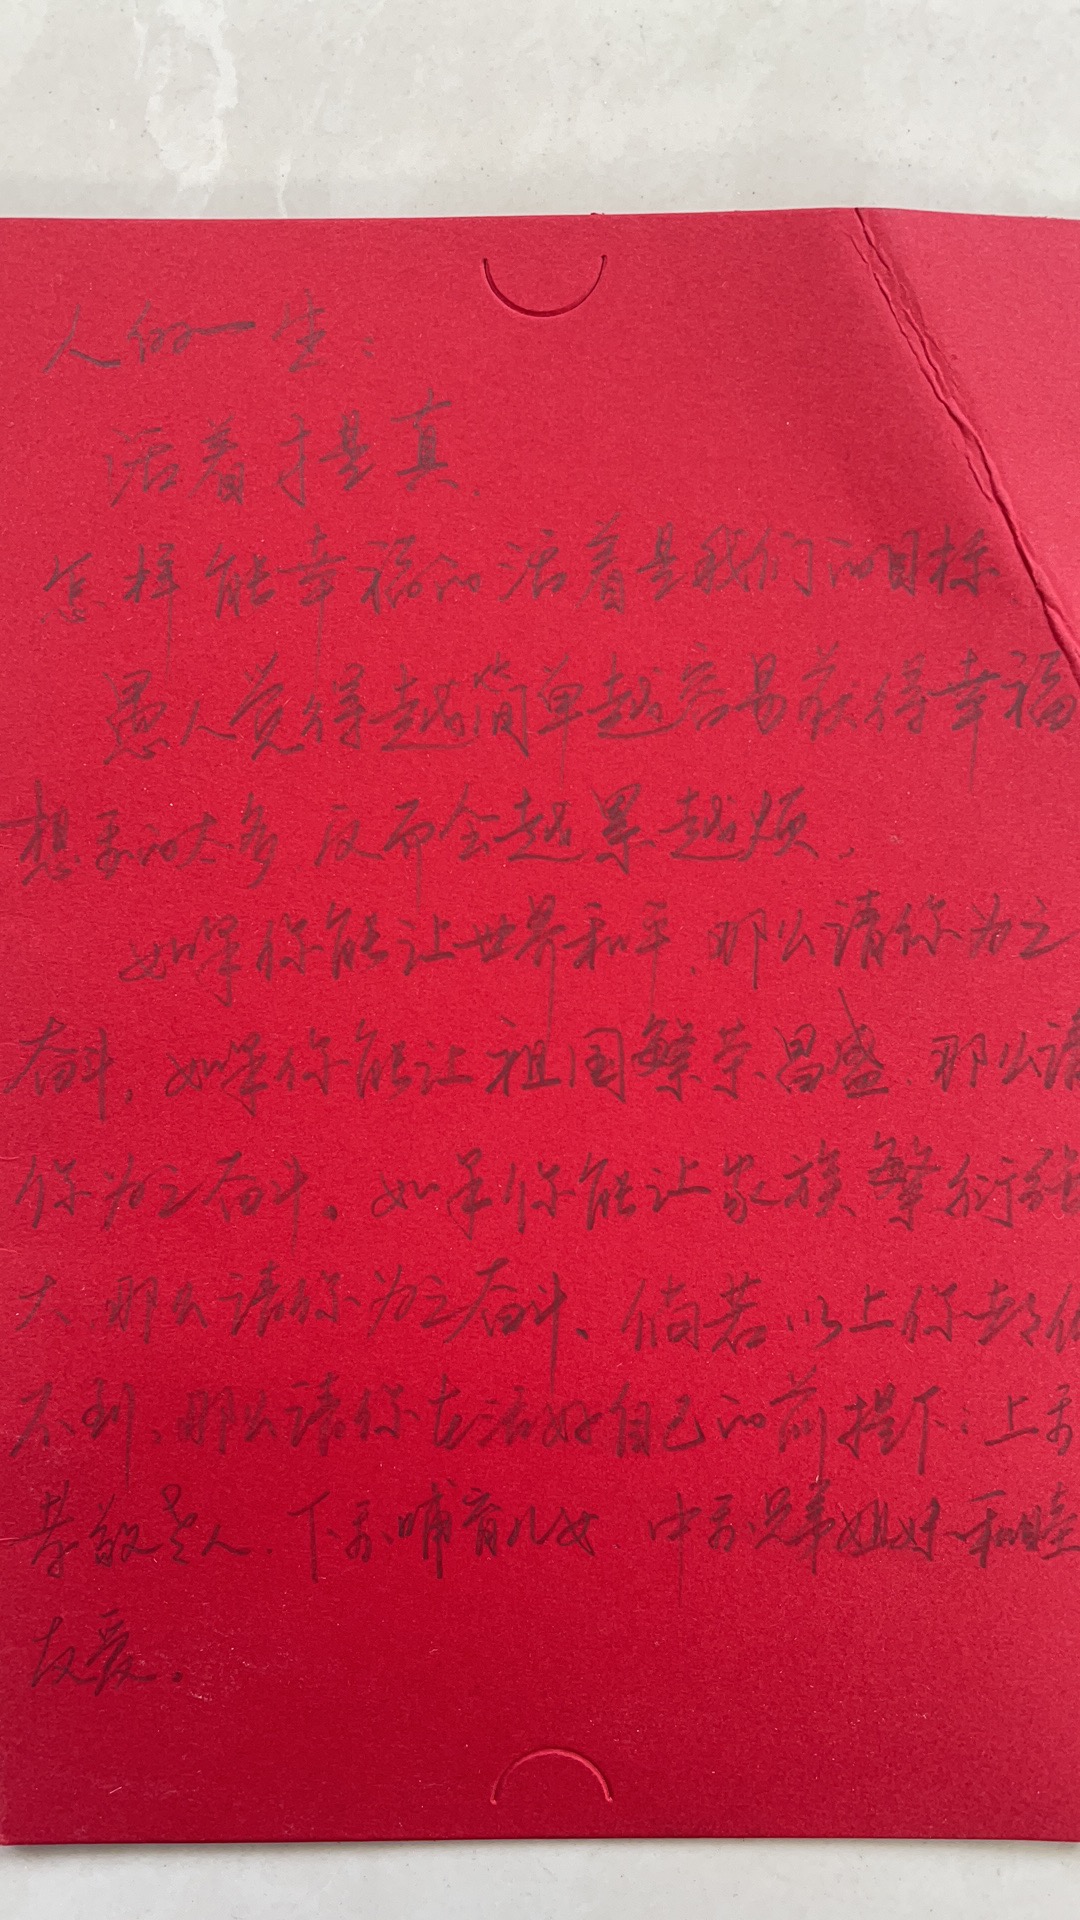 人的一生：
活着才是真.
怎样能幸福的活着是我们的目标.
愚人觉得越简单越容易获得幸福
想要的太多 反而会越累越烦.
如果你能让世界和平、那么请你为之
奋斗. 如果你能让祖国繁荣昌盛、那么请
你为之奋斗. 如果你能让家族繁衍强
大、那么请你为之奋斗、倘若以上你都做
不到、那么请你在活好自己的前提下：上要
孝敬老人、下要哺育儿女、中要兄弟姐妹和睦
友爱.